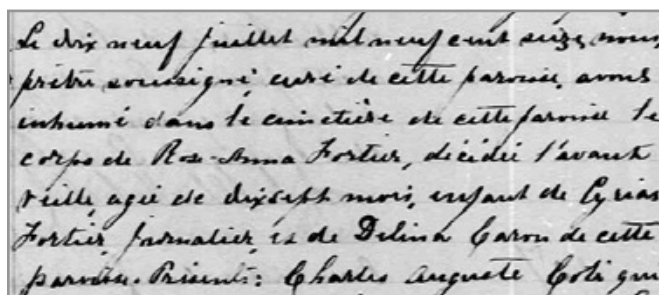 Le dix neuf juillet mil neuf cent seize, nous,
prêtre soussigné curé de cette paroisse, avons
inhumé dans le cimetière de cette paroisse le
corps de Rose-Anna Fortier, décédée l'avant
veille, agée de dixsept mois, enfant de Cyrias
Fortier, journalier, et de Delina Caron de cette
paroisse. Présents: Charles Auguste Coté qui